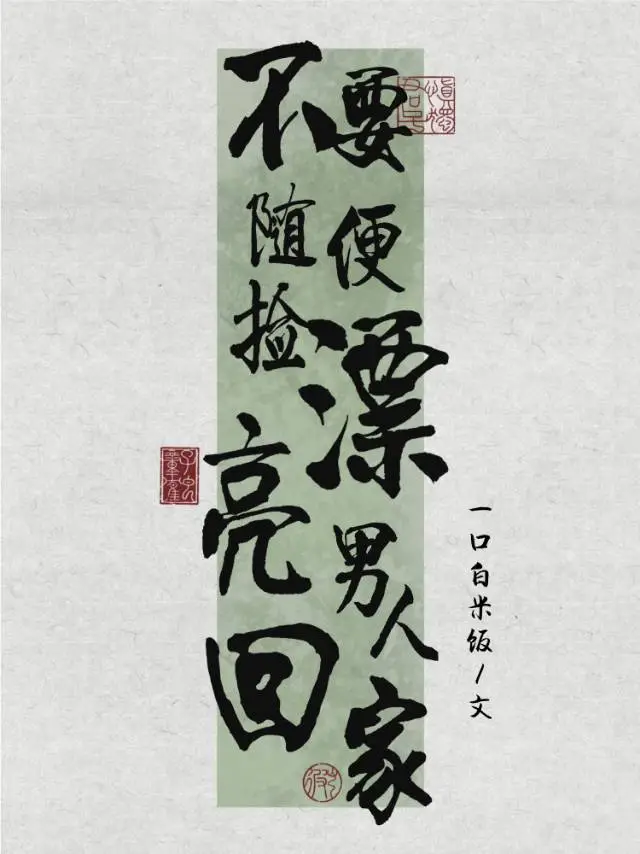 不要
随便
捡漂
亮男人
回家
一口自米饭/文